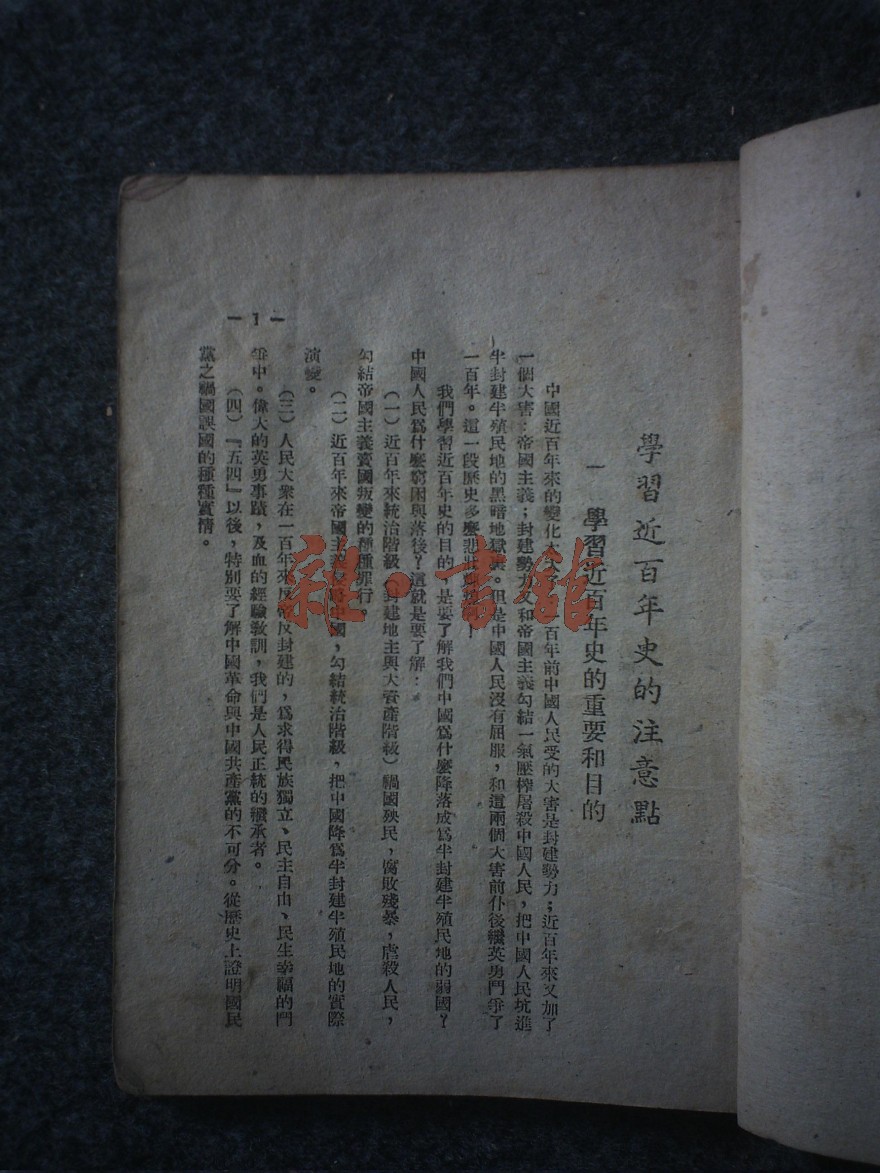 學習近百年史的注意點
一 學習近百年史的重要和目的
中國近百年來的變化太大了 百年前中國人民受的大害是封建勢力；近百年來又加了
一個大害：帝國主義；封建勢力又和帝國主義勾結一氣壓榨屠殺中國人民，把中國人民坑進
半封建半殖民地的黑暗地獄裏。但是中國人民沒有屈服，和這兩個大害前仆後繼英勇鬥爭了
一百年。這一段歷史多麼悲壯
我們學習近百年史的目的，是要了解我們中國爲什麼降落成爲半封建半殖民地的弱國？
中國人民爲什麼窮困與落後？這就是要了解：
（一）近百年來統治階級（封建地主與大資產階級）禍國殃民，腐敗殘暴，虐殺人民，
勾結帝國主義賣國叛變的種種罪行。
（二）近百年來帝國主義侵略中國，勾結統治階級，把中國降爲半封建半殖民地的實際
演變。
（三）人民大衆在一百年來反帝反封建的，爲求得民族獨立、民主自由、民生幸福的鬥
爭中。偉大的英勇事蹟，及血的經驗敎訓，我們是人民正統的繼承者。
（四）『五四』以後，特別要了解中國革命與中國共產黨的不可分。從歷史上證明國民
黨之禍國誤國的種種實情。
— 1 —
雜·書館